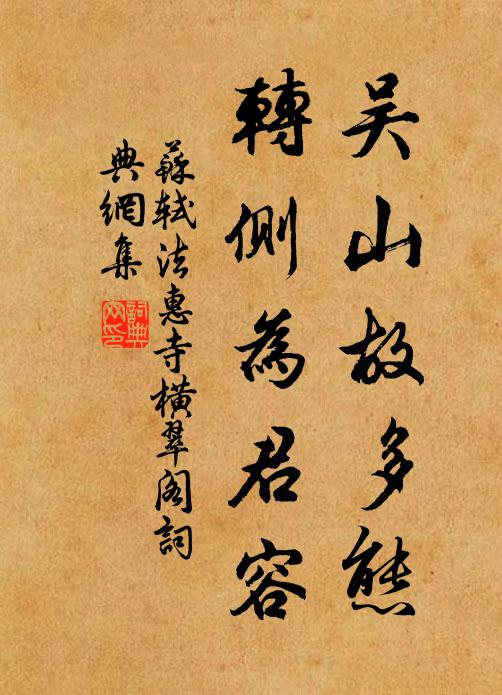 吴山故多態
轉側為君容
蘇軾法惠寺橫翠閣詞
典網集
詞典網印